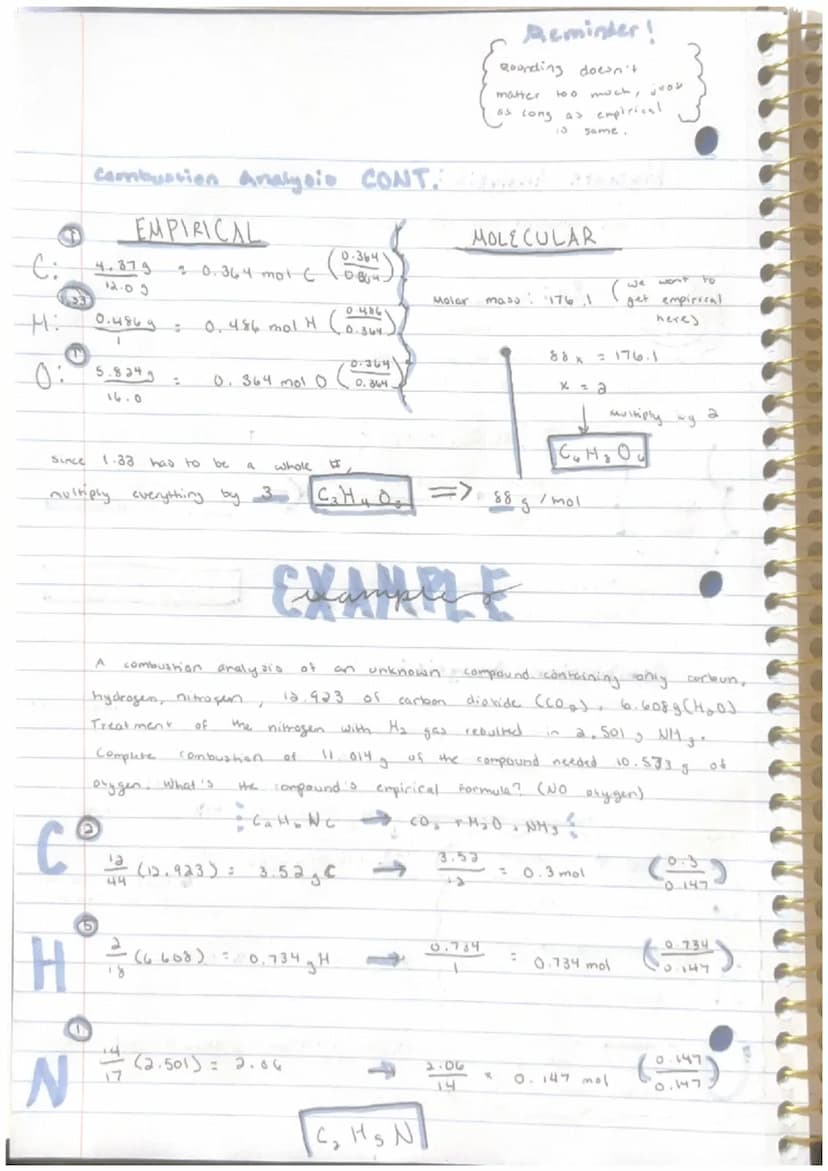 Reminder!
Rounding doesn't
matter too much, just
as long as empirical
is same.
Combustion Analysis CONT.
EMPIRICAL
① C: 4.37g / 12.0 g = 0.364 mol C (0.364 / 0.364)
1.33 H: 0.486g / 1 = 0.486 mol H (0.486 / 0.364)
① O: 5.824g / 16.0 = 0.364 mol O (0.364 / 0.364)
since 1.33 has to be a whole #,
multiply everything by 3 C₃H₄O₃ => 88 g/mol
MOLECULAR
Molar mass: 176.1 (we want to
get empirical
here)
88x = 176.1
x = 2
multiply by 2
C₆H₈O₆
EXAMPLE
examples
A combustion analysis of an unknown compound containing only carbon,
hydrogen, nitrogen, 12.923 of carbon dioxide (CO₂), 6.608g (H₂O)
Treatment of the nitrogen with H₂ gas resulted in 2.501 g NH₃.
Complete combustion of 11.014 g of the compound needed 10.573 g of
oxygen. What's the compound's empirical formula? (NO oxygen)
: CaHbNc → CO₂ + H₂O + NH₃ :
C ② 12/44 (12.923) = 3.52 g C → 3.52/12 = 0.3 mol (0.3/0.147)
H ⑤ 2/18 (6.608) = 0.734 g H → 0.734/1 = 0.734 mol (0.734/0.147)
N ① 14/17 (2.501) = 2.06 → 2.06/14 = 0.147 mol (0.147/0.147)
C₂H₅N